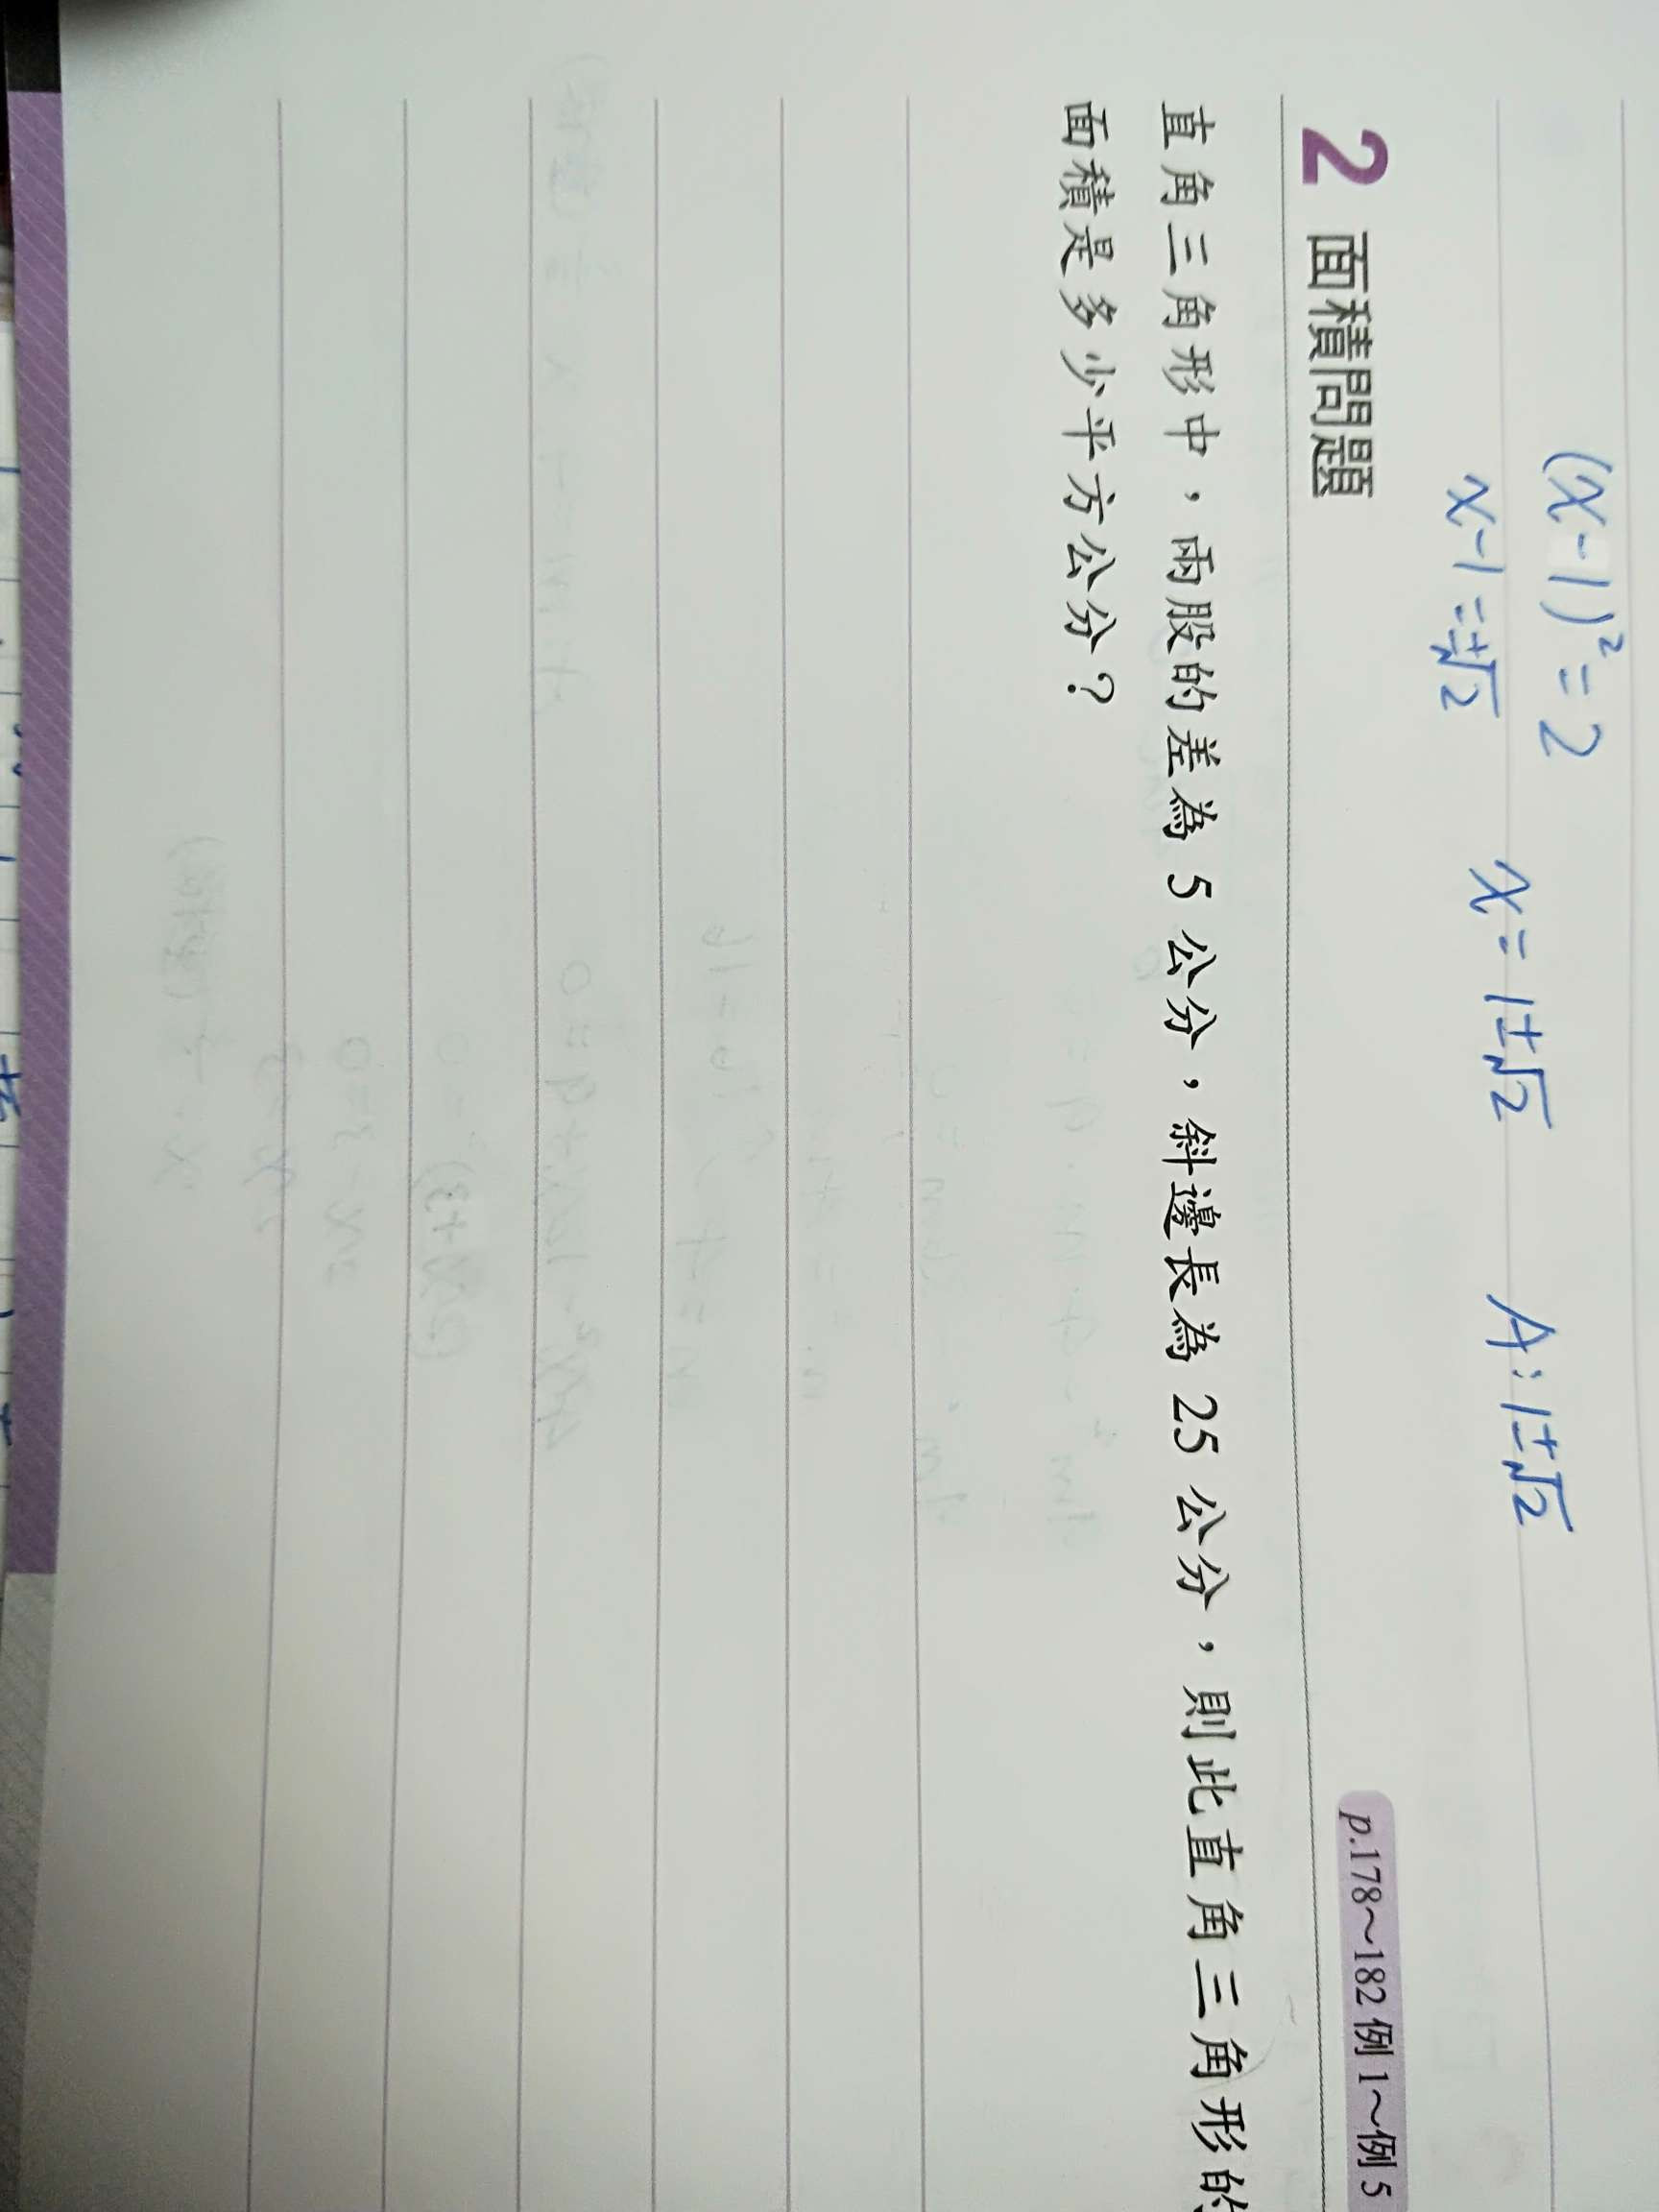 (x-1)²=2
x-1=±√2 x=1±√2 A:1±√2
2 面積問題 p.178～182 例 1～例 5
直角三角形中，兩股的差為 5 公分，斜邊長為 25 公分，則此直角三角形的
面積是多少平方公分？